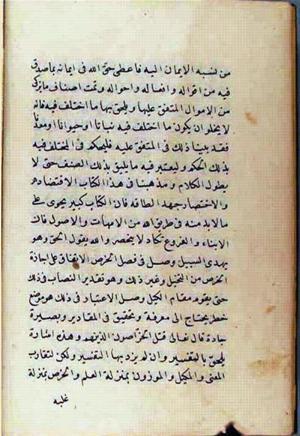 من نسبة الايمان اليه فاعطى حق الله في ايمانه بما صدق
فيه من اقواله وافعاله واحواله وتمت اصناف ما يزكى
من الاموال المتفق عليها ويلحق بها ما اختلف فيه فانه
لا يخلوان يكون ما اختلف فيه نباتا او حيوانا او معدنا
فقد بينا ذلك في المتفق عليه فليحكم في المختلف فيه
بذلك الحكم وليعتبر فيه ما يليق بذلك الصنف حتى لا
يطول الكلام ومذهبنا في هذا الكتاب الاقتصاد
والاختصار جهد الطاقة فان الكتاب كبير يحوى على
ما لابد منه في طريق الله من الامهات والاصول فان
الابناء والفروع تكاد لا ينحصر والله يقول الحق وهو
يهدى السبيل وصل في فصل الخرص الاتفاق على اجازة
الخرص من النخيل وغير ذلك وهو تقدير النصاب في ذلك
حتى يقوم مقام الكيل وصل الاعتبار في ذلك هو موضع
خطر يحتاج الى معرفة وتحقيق في المقادير وبصيرة
حادة قال تعالى قتل الخراصون الذين هم وهذه اشارة
يلحق بالتفسير وان لم يرد بها التفسير ولكن لتقارب
المعنى والمكيل والموزون بمنزلة العلم والخرص بمنزلة
غلبة